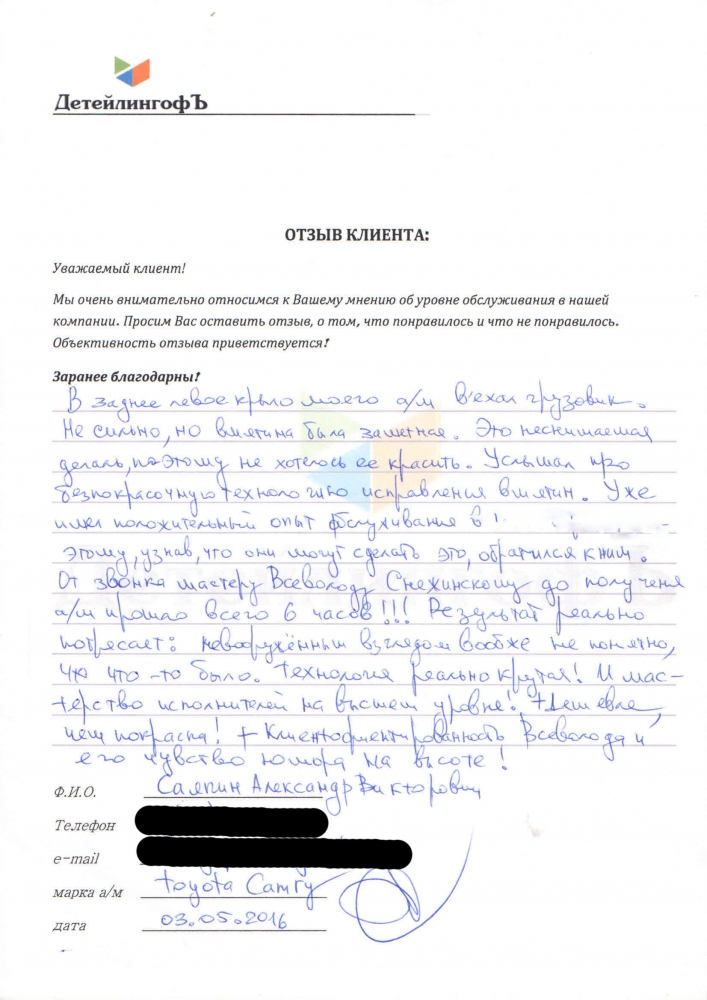 ДетейлингофЪ
ОТЗЫВ КЛИЕНТА:
Уважаемый клиент!
Мы очень внимательно относимся к Вашему мнению об уровне обслуживания в нашей
компании. Просим Вас оставить отзыв, о том, что понравилось и что не понравилось.
Объективность отзыва приветствуется!
Заранее благодарны!
В заднее левое крыло моего а/м въехал грузовик.
Не сильно, но вмятина была заметная. Это неснимаемая
деталь, поэтому не хотелось ее красить. Услышал про
безпокрасочную технологию исправления вмятин. Уже
имел положительный опыт обслуживания в
этому, узнав, что они могут сделать это, обратился к ним.
От звонка мастеру Всеволоду Снежинскому до получения
а/м прошло всего 6 часов!!! Результат реально
потресает: невооружённым взглядом вообже не понятно,
что что-то было. Технология реально крутая! И мас-
терство исполнителей на высшем уровне! + Дешевле,
чем покраска! + Клиентоориентированность Всеволода и
его чувство юмора на высоте!
Ф.И.О. Саяпин Александр Викторович
Телефон
e-mail
марка а/м Toyota Camry
дата 03.05.2016